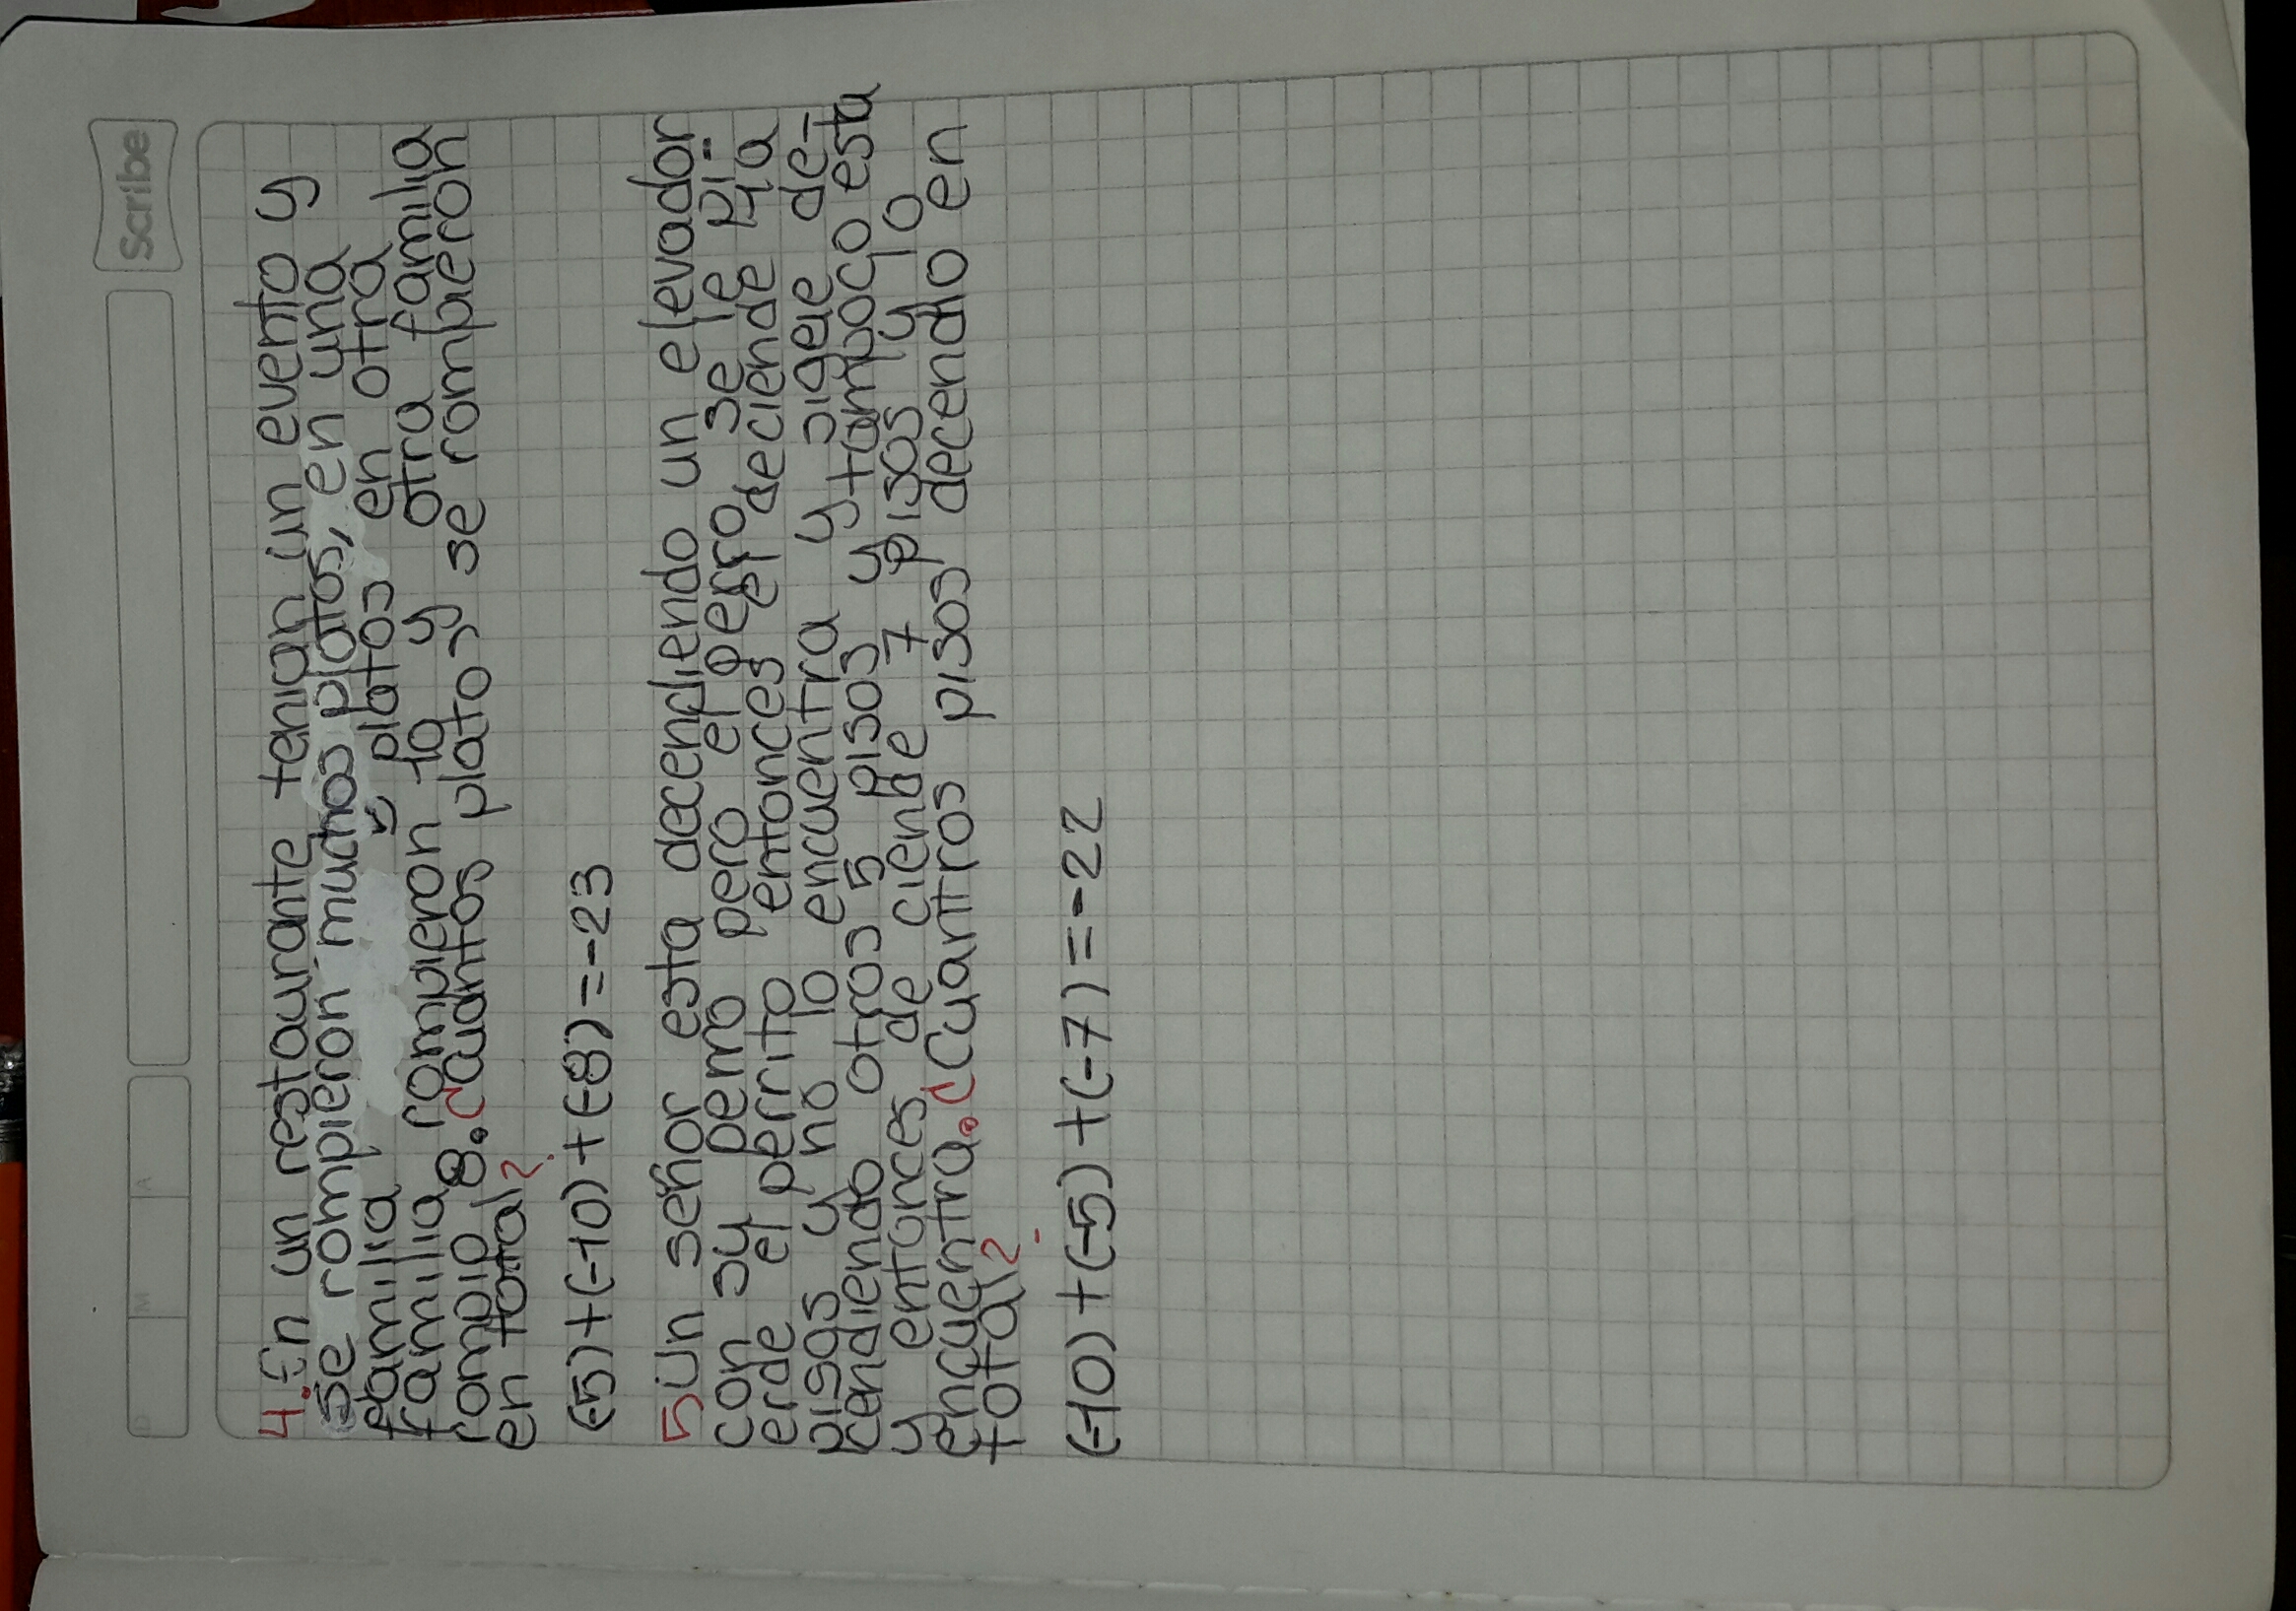 Scribe
D M A
4.En un restaurante tenian un evento y
se rompieron muchos platos, en una
familia 5 platos en otra
familia rompieron 10 y otra familia
rompio 8.¿cuantos platos se rompieron
en total?
(-5)+(-10)+(-8)=-23
5Un señor esta decendiendo un elevador
con su perro pero el perro se le pi-
erde el perrito entonces el deciende 10
pisos y no lo encuentra y sigeie de-
cendiendo otros 5 pisos y tampoco esta
y entonces de ciende 7 pisos y lo
encuentra.¿Cuantros pisos decendio en
total?
(-10)+(-5)+(-7)=-22